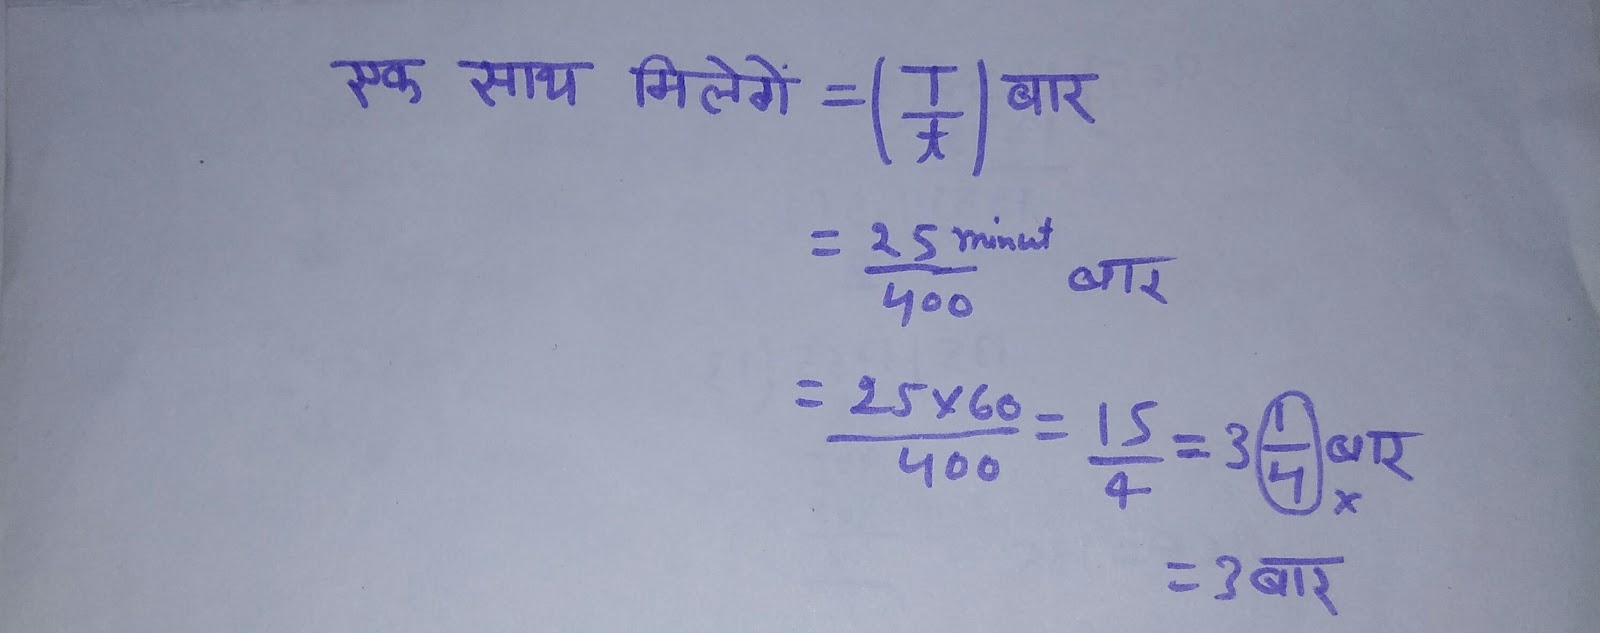 एक साथ मिलेगें = (T/t) बार
= 25 minut/400 बार
= 25×60/400 = 15/4 = 3 1/4 बार x
= 3 बार